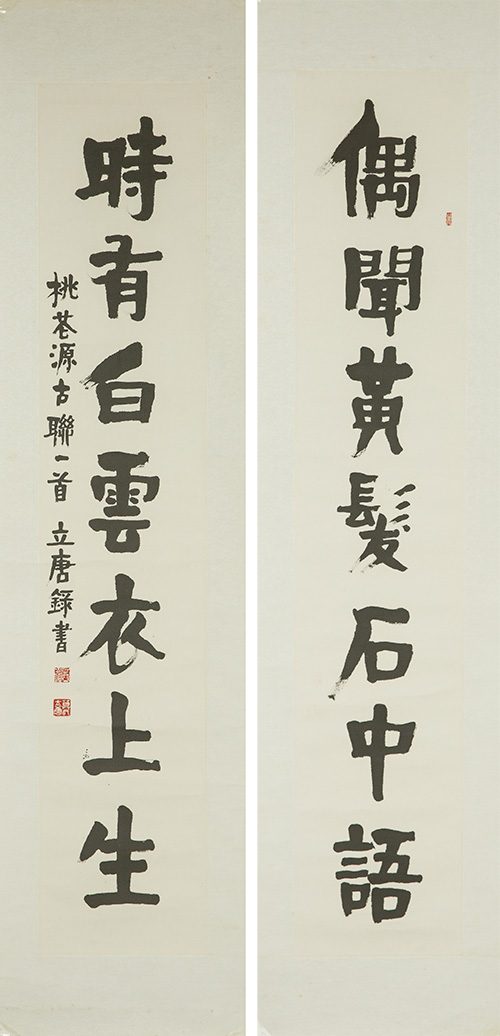 偶聞黃髮石中語
時有白雲衣上生
桃花源古聯一首 立唐錄書